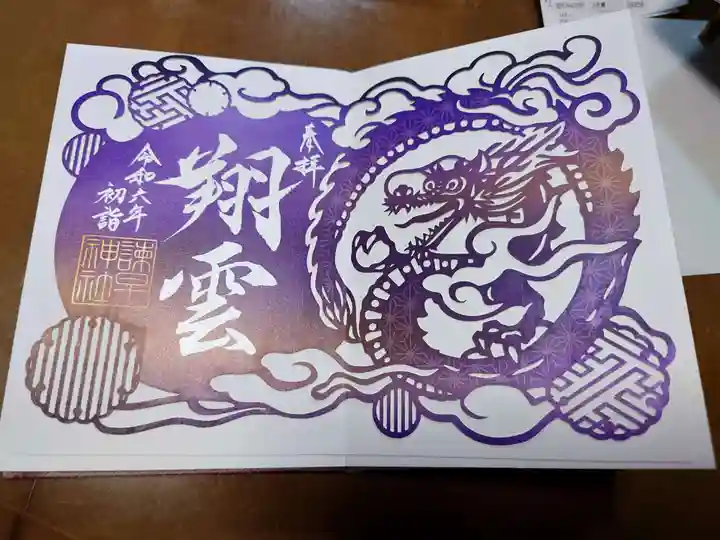 奉拝
翔雲
令和六年
初詣
諫早
神社